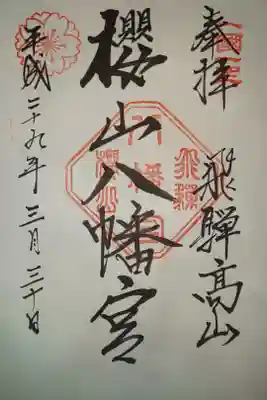 奉拝 飛騨高山
櫻山八幡宮
平成二十九年三月三十日